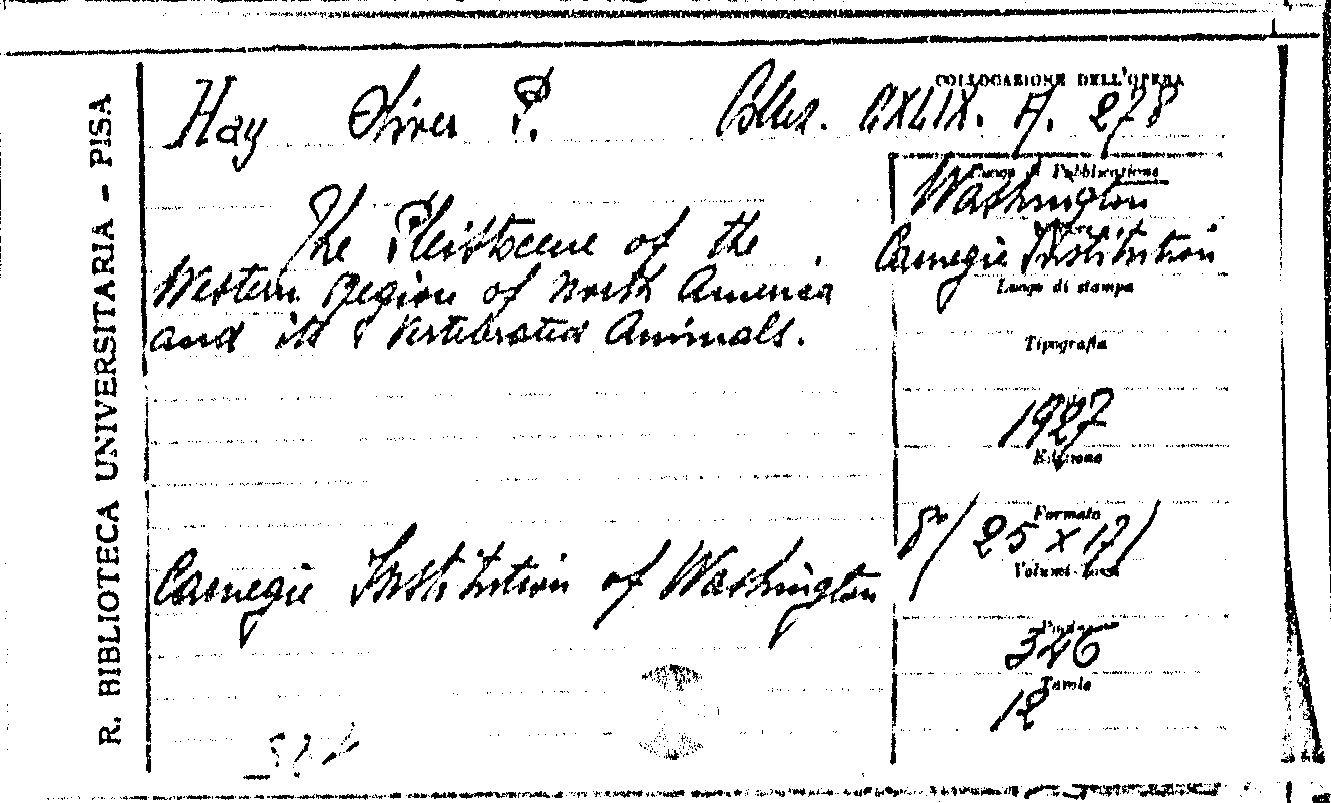 R. BIBLIOTECA UNIVERSITARIA - PISA
COLLOCAZIONE DELL'OPERA
Hay Oliver P. Collez. CXLIX. A. 278
Luogo di Pubblicazione
Washington
The Pleistocene of the
Carnegie Institution
Western Region of North America
Luogo di stampa
and its Vertebrated Animals.
Tipografia
1927
Edizione
Formato
8° (25 x 17)
Volumi
Carnegie Institution of Washington
346
Tavole
12